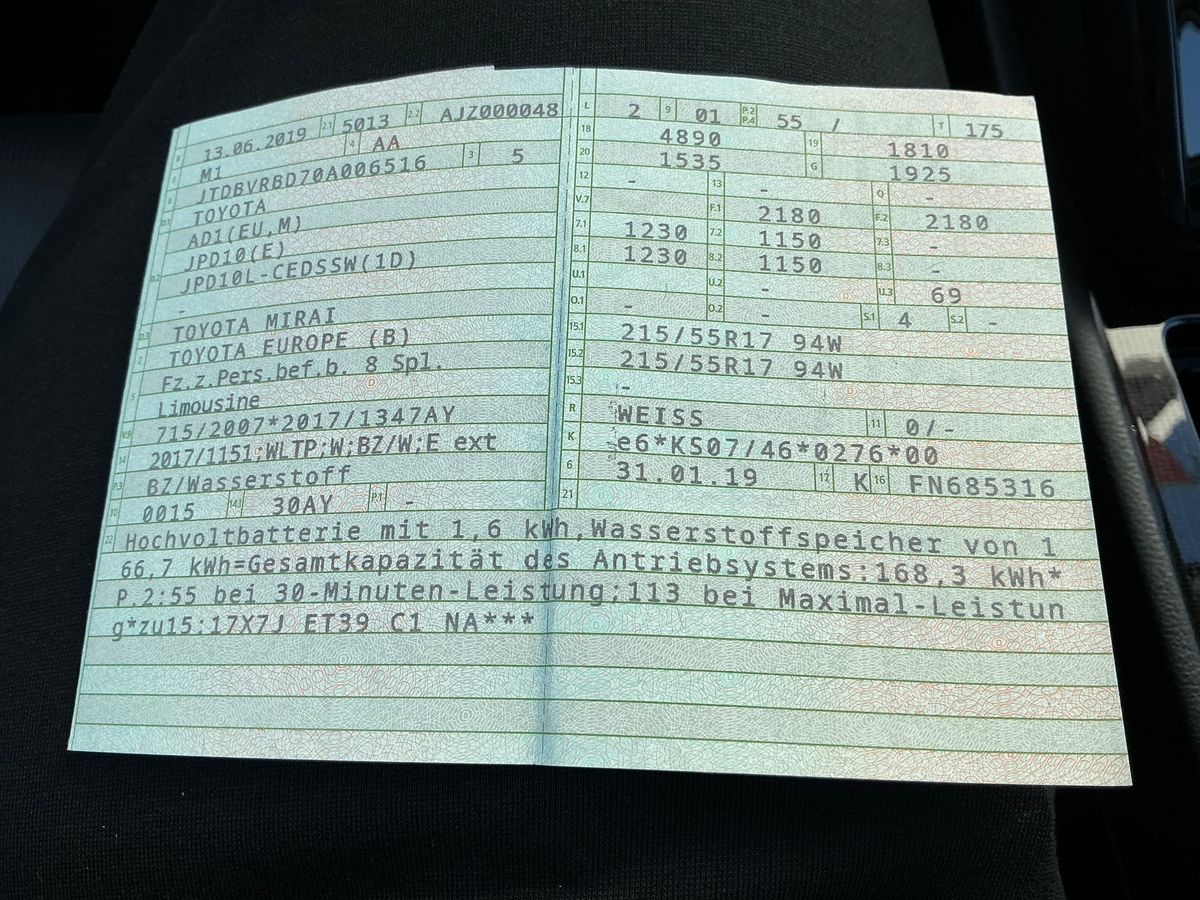 B 13.06.2019 2.1 5013 2.2 AJZ000048
J M1 4 AA
E JTDBVRBD70A006516 3 5
D.1 TOYOTA
D.2 AD1(EU,M)
JPD10(E)
JPD10L-CEDSSW(1D)
-
D.3 TOYOTA MIRAI
2 TOYOTA EUROPE (B)
5 Fz.z.Pers.bef.b. 8 Spl.
Limousine
V.9 715/2007*2017/1347AY
14 2017/1151;WLTP;W;BZ/W;E ext
P.3 BZ/Wasserstoff
10 0015 14.1 30AY P.1 -
L 2 9 01 P.2 P.4 55 / T 175
18 4890 19 1810
20 1535 G 1925
12 - 13 - Q -
V.7 F.1 2180 F.2 2180
7.1 1230 7.2 1150 7.3 -
8.1 1230 8.2 1150 8.3 -
U.1 U.2 - U.3 69
O.1 - O.2 - S.1 4 S.2 -
15.1 215/55R17 94W
15.2 215/55R17 94W
15.3 -
R WEISS 11 0/-
K e6*KS07/46*0276*00
6 31.01.19 17 K 16 FN685316
21
22 Hochvoltbatterie mit 1,6 kWh,Wasserstoffspeicher von 1
66,7 kWh=Gesamtkapazität des Antriebsystems:168,3 kWh*
P.2:55 bei 30-Minuten-Leistung;113 bei Maximal-Leistun
g*zu15:17X7J ET39 C1 NA***